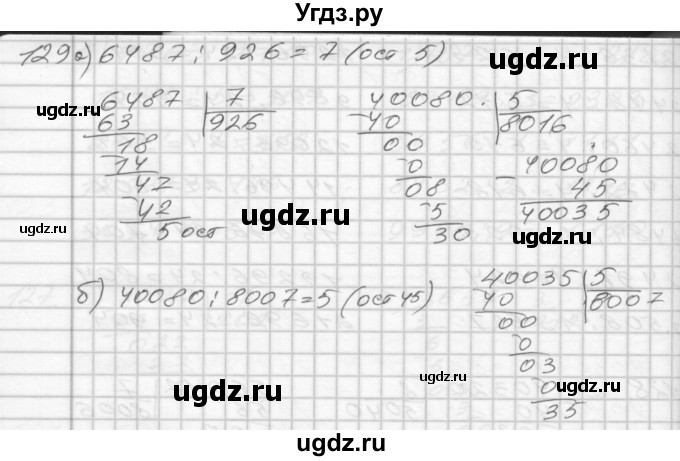 Угдз.ру
129 а) 6487 : 926 = 7 (ост 5)
6487 | 7
63 | 926
18
14
47
42
5 ост
40080 | 5
40 | 8016
00
0
08
5
30
40080
45
40035
б) 40080 : 8007 = 5 (ост 45)
40035 | 5
40 | 8007
00
0
03
0
35
ugdz.ru
ugdz.ru
ugdz.ru
ugdz.ru
ugdz.ru
ugdz.ru
ugdz.ru
ugdz.ru
ugdz.ru